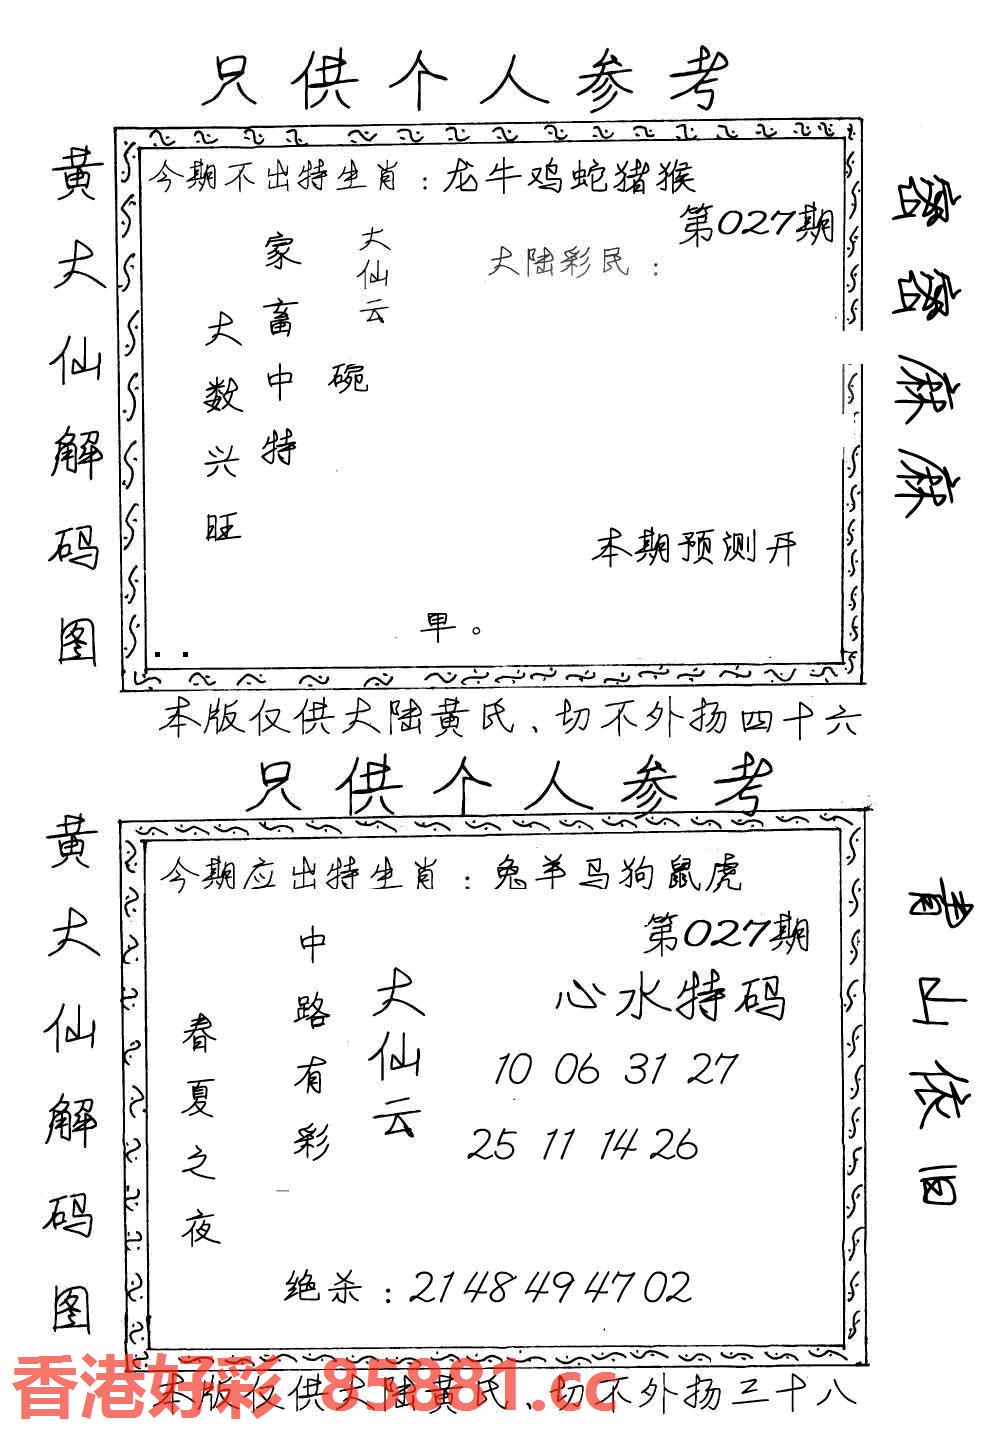 只供个人参考
黄大仙解码图
今期不出特生肖：龙牛鸡蛇猪猴
第027期
大仙云
大陆彩民：
家畜中特
大数兴旺
碗
本期预测开
甲。
密密麻麻
本版仅供大陆黄氏、切不外扬四十六
只供个人参考
黄大仙解码图
今期应出特生肖：兔羊马狗鼠虎
第027期
心水特码
大仙云
中路有彩
春夏之夜
10 06 31 27
25 11 14 26
绝杀：21 48 49 47 02
青山依旧
香港好彩 85881.cc
本版仅供大陆黄氏、切不外扬三十八